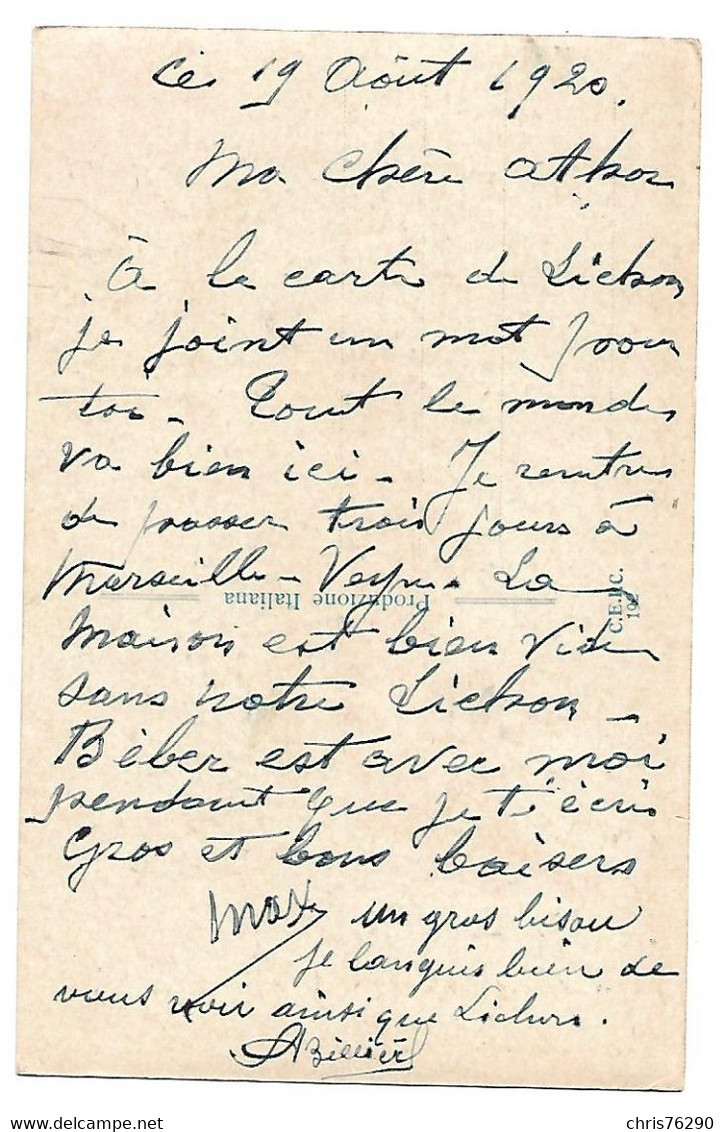 Le 19 Août 1920.
Ma chère
À la carte de Lichon
je joint un mot pour
toi - Tout le monde
va bien ici - Je rentre
de passer trois jours à
Marseille - Veyre - La
Produzione Italiana
C.E.I.C.
192
maison est bien vide
sans notre Lichon -
Bèber est avec moi
pendant que je t'écris
Gros et bons baisers
Max un gros bisou
je languis bien de
vous voir ainsi que Lichon.
chris76290